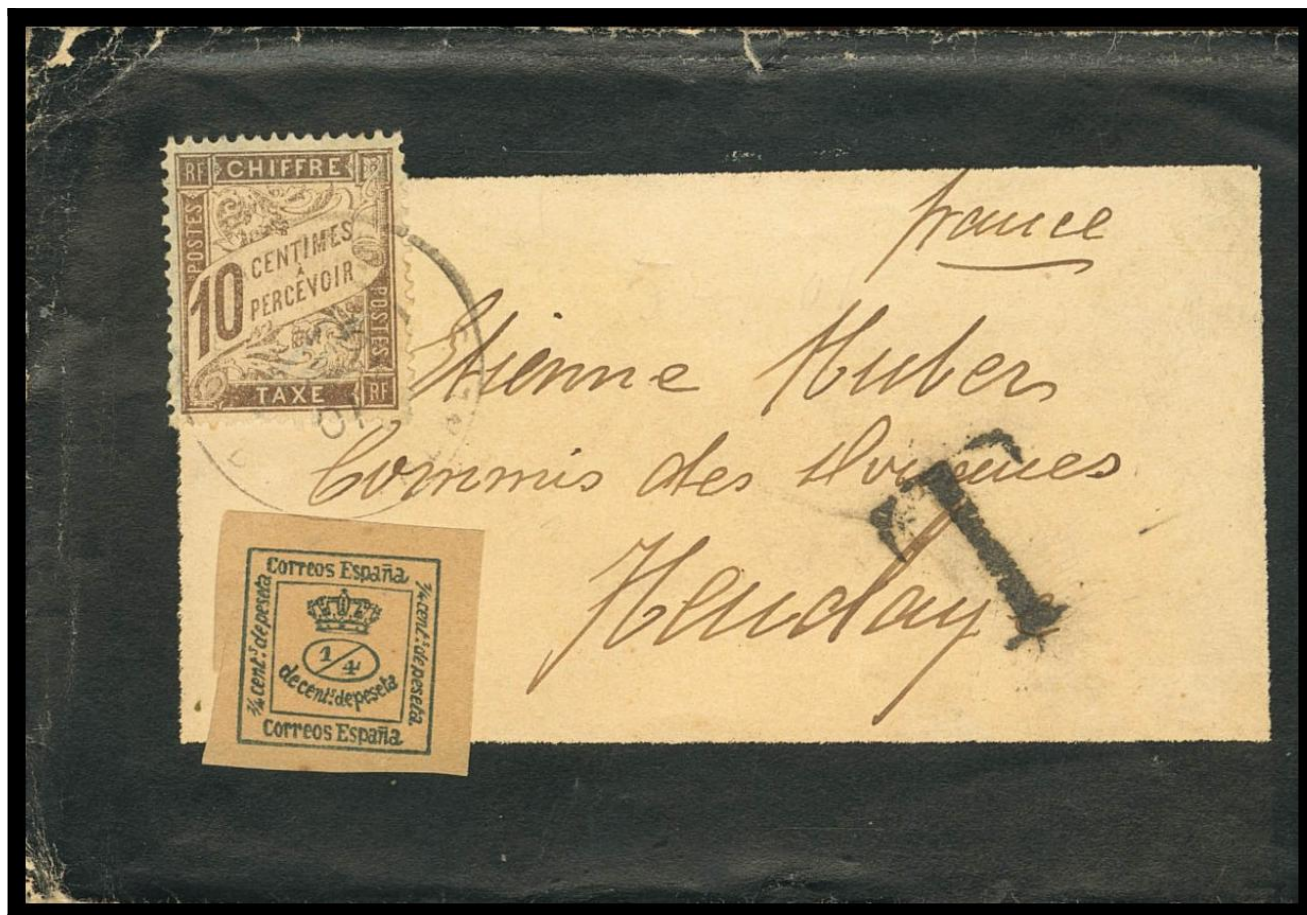 RF CHIFFRE
POSTES
10 CENTIMES
A
PERCEVOIR
POSTES
TAXE RF
01
france
Etienne Huber
Commis des Douanes
Hendaye
T
Correos España
1/4 cent.s de peseta
1/4 cent.s de peseta
1/4
de cent.s de peseta
Correos España